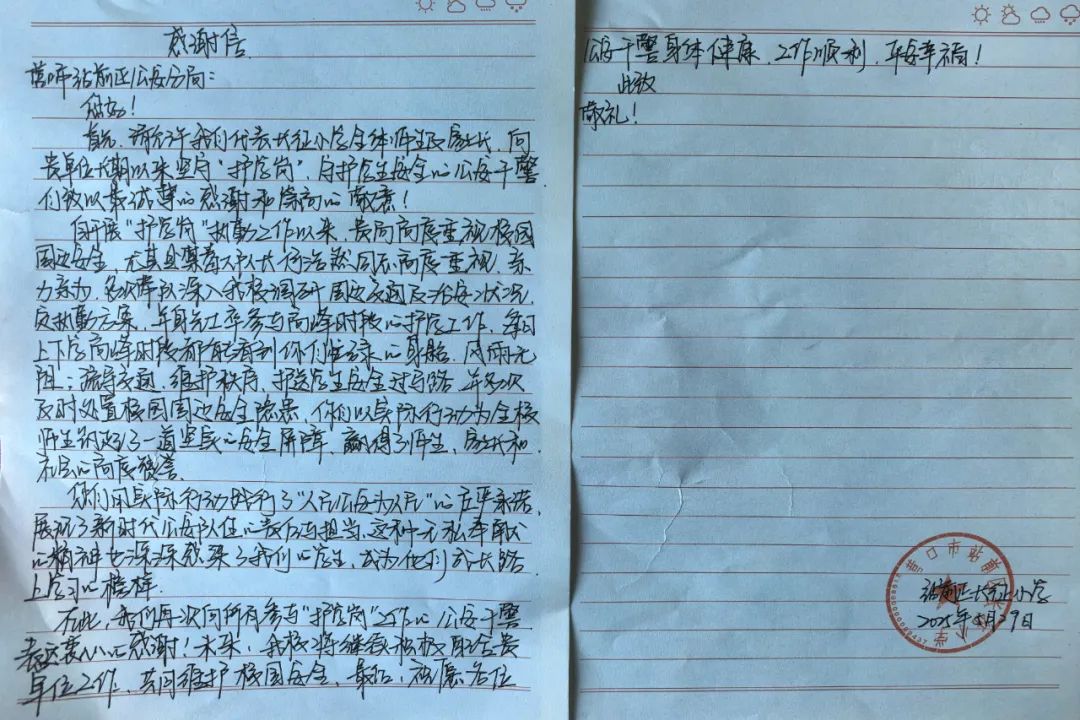 感谢信
营口市站前区公安分局：
您好！
首先，请允许我们代表长征小学全体师生及家长，向
贵单位长期以来坚守“护学岗”、守护学生安全的公安干警
们致以最诚挚的感谢和崇高的敬意！
自开展“护学岗”执勤工作以来，贵局高度重视校园
周边安全，尤其是禁毒大队长何浩然同志高度重视、亲
力亲为，多次带队深入我校调研周边交通及治安状况，
定执勤方案，并身先士卒参与高峰时段的护学工作，每日
上下学高峰时段都能看到你们忙碌的身影，风雨无
阻：疏导交通、维护秩序、护送学生安全过马路，并多次
及时处置校园周边安全隐患，你们以实际行动为全校
师生筑起了一道坚实的安全屏障，赢得了师生、家长和
社会的高度赞誉。
你们用实际行动践行了“人民公安为人民”的庄严承诺，
展现了新时代公安队伍的责任与担当，这种无私奉献
的精神也深深感染了我们的学生，成为他们成长路
上学习的榜样。
在此，我们再次向所有参与“护学岗”工作的公安干警
表达衷心的感谢！未来，我校将继续积极配合贵
单位工作，共同维护校园安全，最后，祝愿各位
公安干警身体健康、工作顺利，平安幸福！
此致
敬礼！
营口市站前区长征小学
站前区长征小学
2025年5月29日